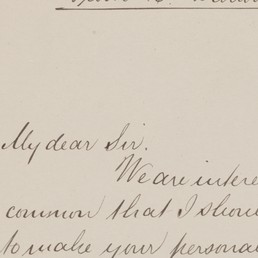 My dear Sir.
We are intere
common that I shou
to make your persona